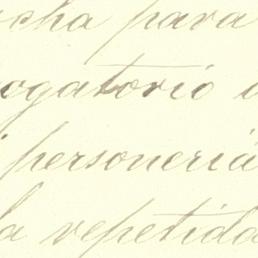 cha para
ogatorio
personeria
la repetida